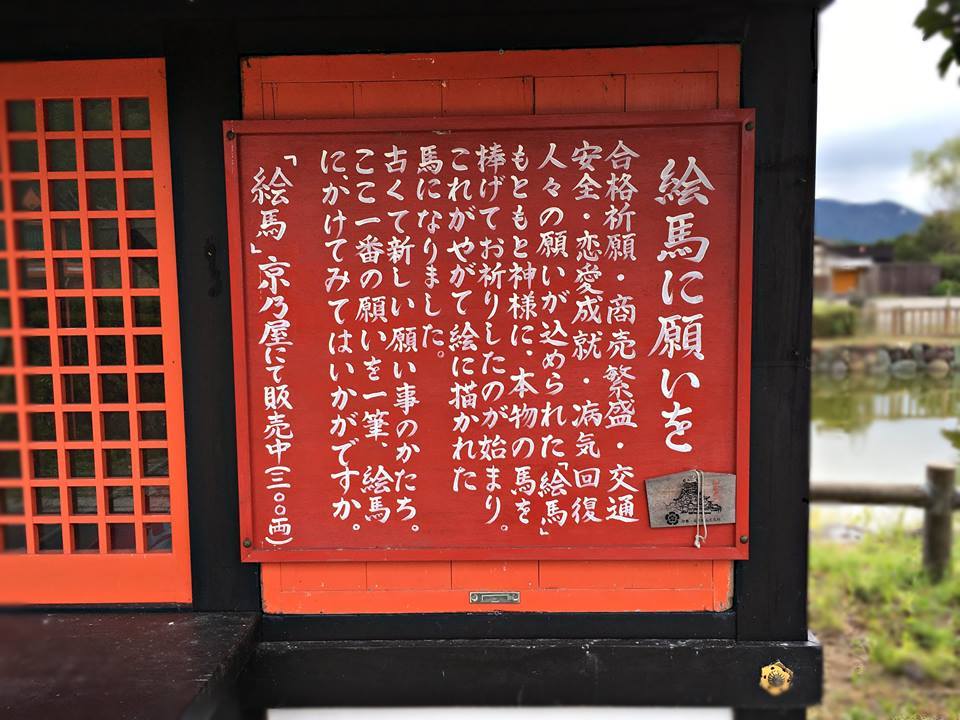 絵馬に願いを
合格祈願・商売繁盛・交通
安全・恋愛成就・病気回復
人々の願いが込められた「絵馬」
もともと神様に、本物の馬を
捧げてお祈りしたのが始まり。
これがやがて絵に描かれた
馬になりました。
古くて新しい願い事のかたち。
ここ一番の願いを一筆、絵馬
に、かけてみてはいかがですか。
「絵馬」京乃屋にて販売中(三〇〇両)